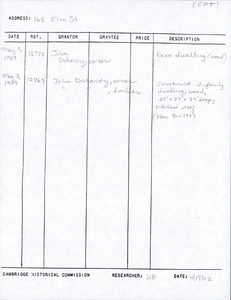 (CPT)
ADDRESS: 168 Elm St
DATE REF. GRANTOR GRANTEE PRICE DESCRIPTION
May 1, 1909 12770 John Doherty, owner Raze dwelling (wood)
May 3, 1909 12769 John Doherty, owner Construct 2-family
" " , builder dwelling, wood,
pitched roof
CAMBRIDGE HISTORICAL COMMISSION RESEARCHER: DATE: